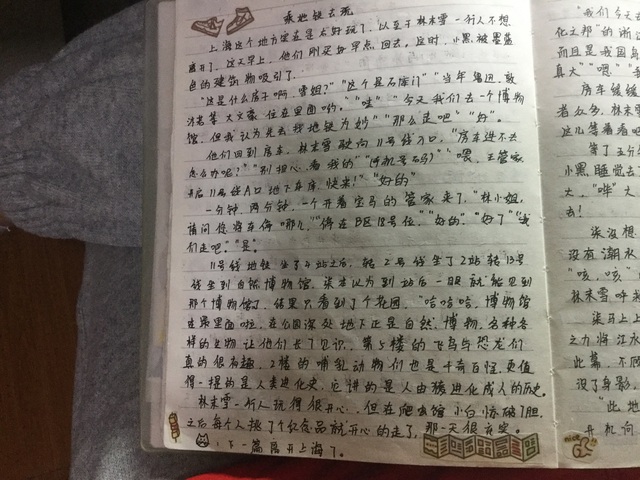 乘地铁去玩
上海这个地方实在是太好玩了，以至于林末雪一行人不想
离开了。这天早上，他们刚买好早点回去，这时，小黑被墨蓝
色的建筑物吸引了。
"这是什么房子啊，雪姐？""这个是石库门""当年鲁迅、敦
沫若等大文豪住在里面哟。""哇""今天我们去一个博物
馆，但我认为先去找地铁为妙""那么走吧""好"。
他们回到房车，林末雪驶向11号线入口，"房车进不去
怎么办呢？""别担心，看我的""(手机号码)""喂，王管家
11号线A口地下车库，快来！""好的"
一分钟，两分钟，一个开着宝马的管家来了，"林小姐，
请问您将车停哪儿""停在B区12号位，""好的。""好了""我
们走吧""是。"
11号线地铁坐了4站之后，转2号线坐了2站转13号
线坐到自然博物馆，本以为到站后一眼就能见到
那个博物馆了，结果只看到了个花园，"哈哈哈，博物馆
在那里面啦，在公园深处地下正是自然博物，各种各
样的生物让他们长了见识，第5楼的飞鸟与恐龙们
真的很有趣，2楼的哺乳动物们也是千奇百怪，更值
得一提的是人类进化史，它讲的是人由猿进化成人的历史。
林末雪一行人玩得很开心，但在爬虫馆小白惊破了胆，
之后每个人挑了个纪念品就开心的走了，那一天很充实。
下一篇离开上海了。
"我们今天
化之邦"的
而且是我国
真大""嗯""我
房车缓缓
者众多，林末雪
这儿等着看
等了五分
小黑睡觉去了
大，"哗"大
去！
没想
没有潮水
"咳，咳"
林末雪呼
柒马上上
之力将江水
此幕，不
没了身影。
"此地
开机向